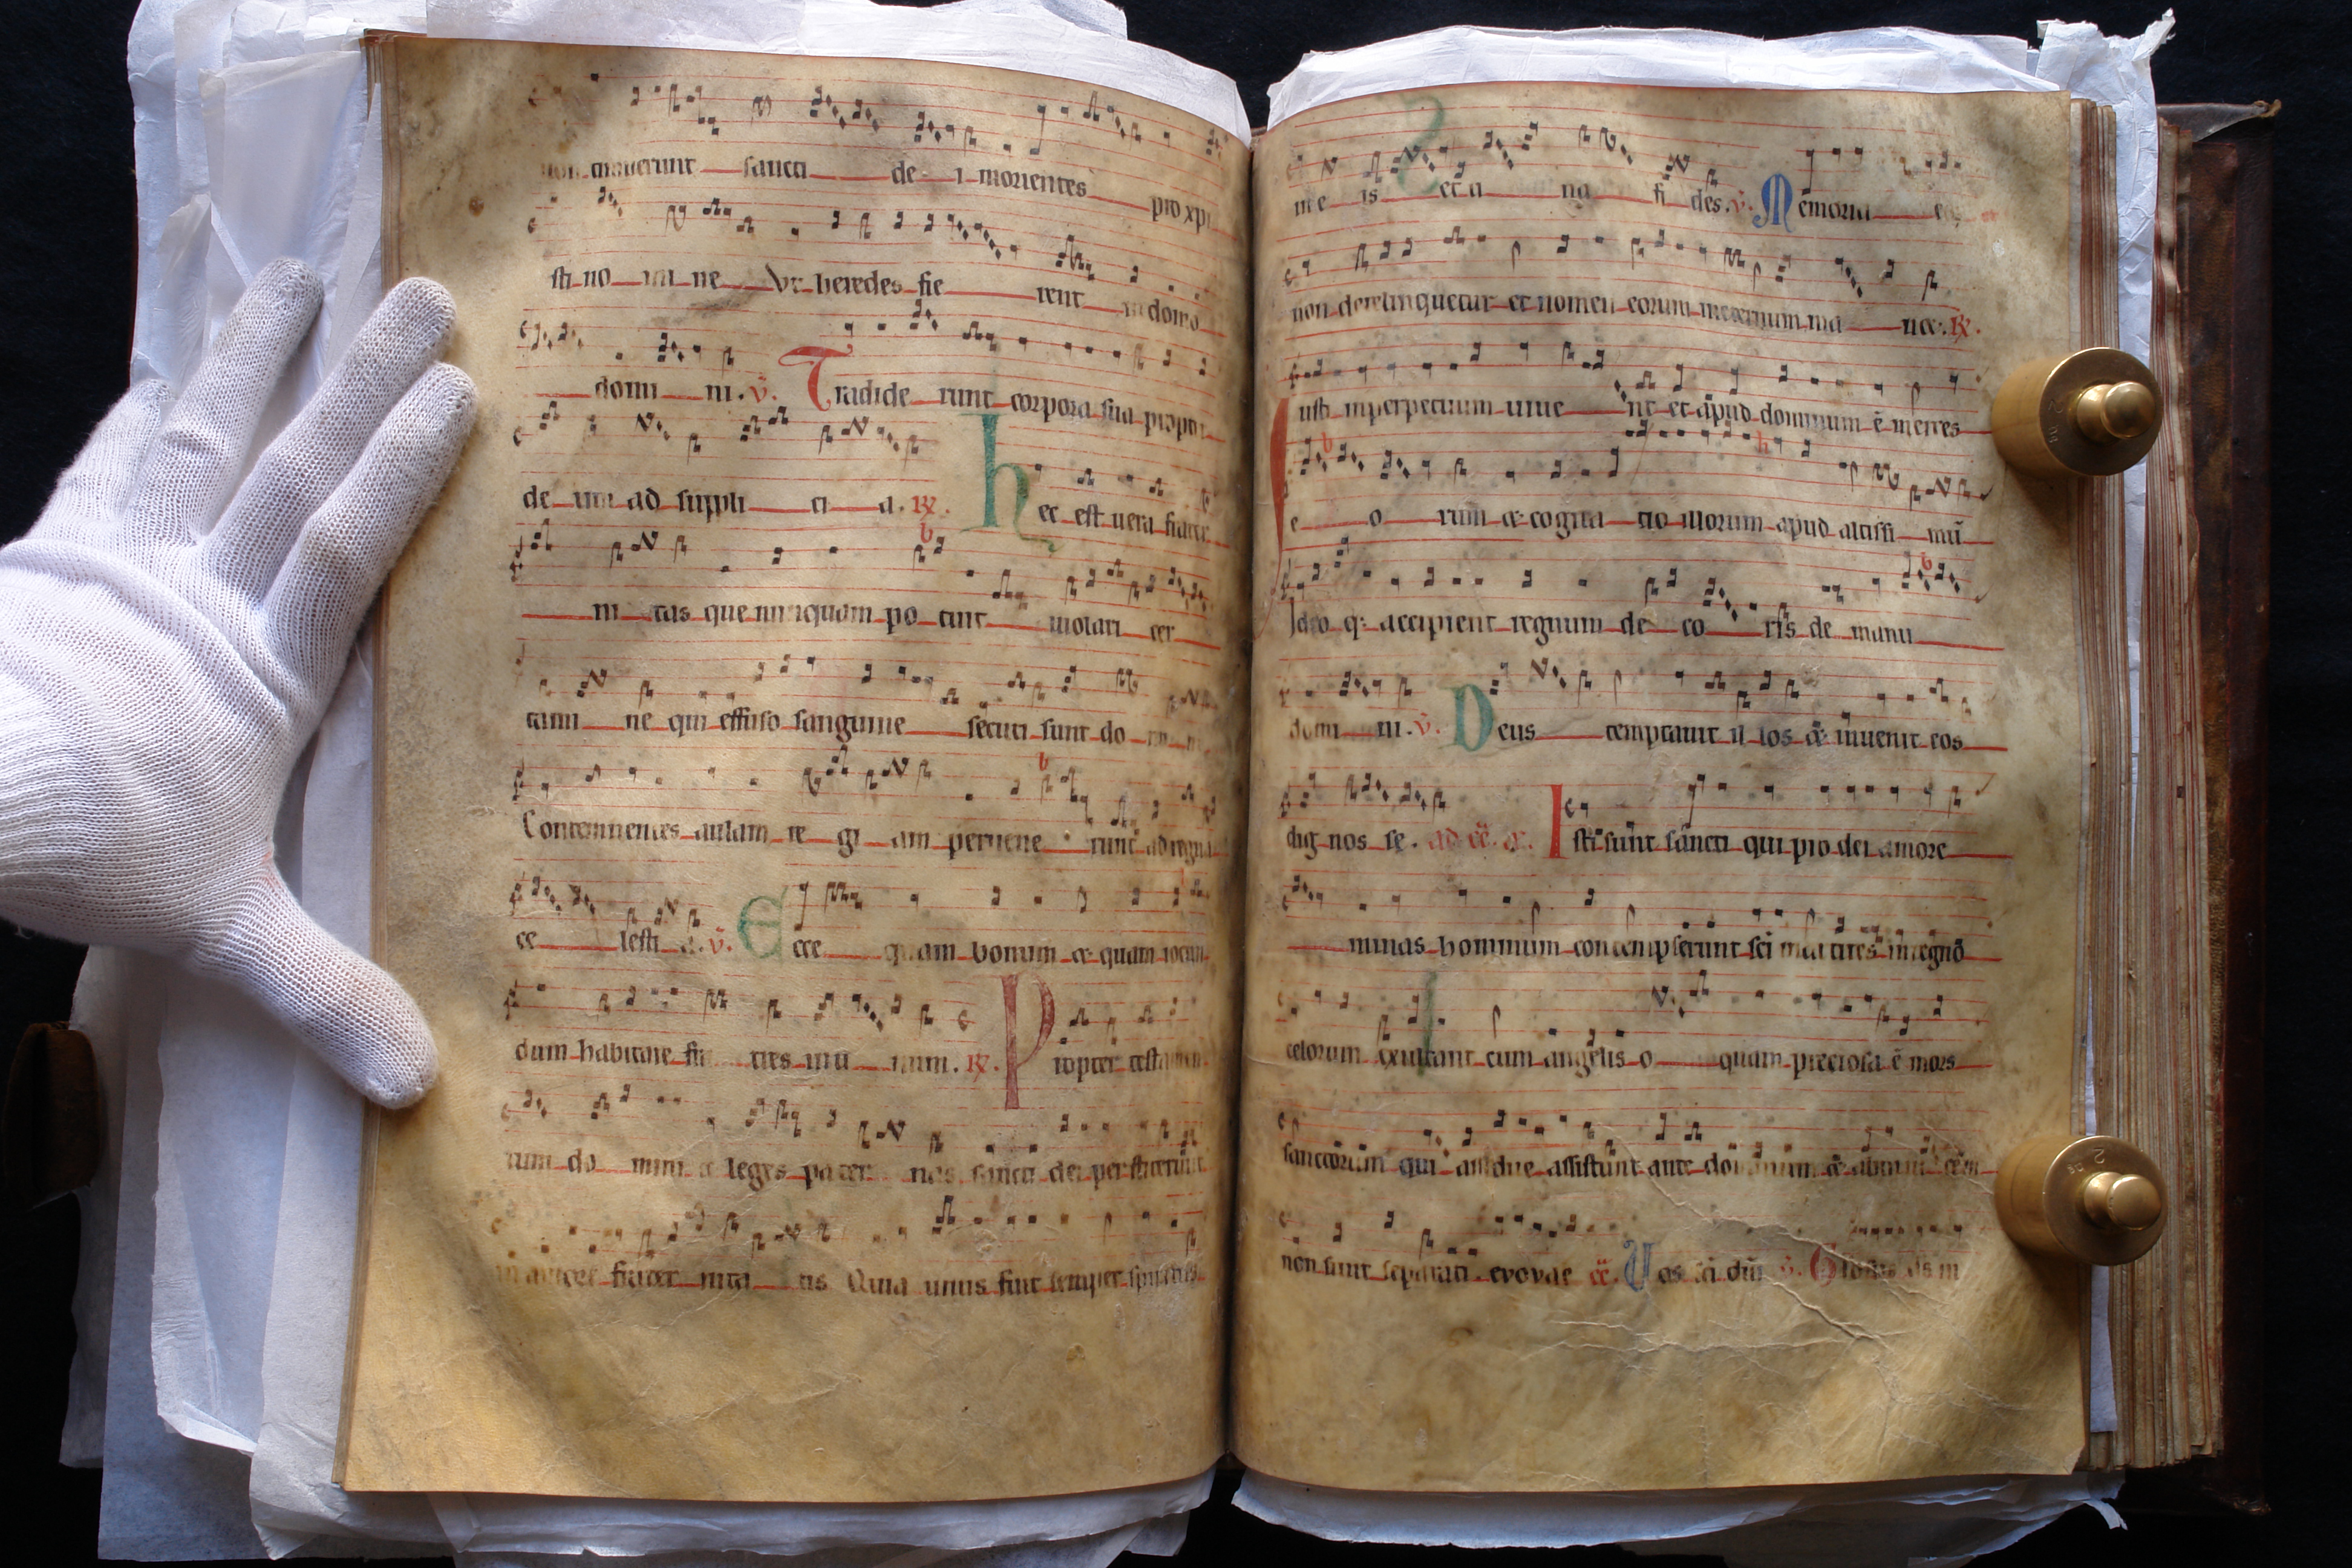 non timuerunt sancti de i morientes pro xpi
sti no mi ne Vt heredes fie rent in domo
domi ni. v. Tradide runt corpora sua propter
de um ad suppli ci a. R.
hec est uera frater
ni tas que nunquam po tuit uiolari cer
tami ne qui effuso sanguine secuti sunt do mi n
Contemnentes aulam re gi am peruene runt ad regna
ce lesti a. v. Ecce quam bonum et quam iocun
dum habitare fra tres in u num. R. Propter testamen
tum do mini et leges pater nas sancti dei perstiterunt
in amore frater nita tis Quia unus fuit semper spiritus
in e is et u na fi des. v. Memoria e
non derelinquetur et nomen eorum in eternum ma net. R.
Iusti inperpetuum uiue nt et apud dominum e merces
e o rum et cogita tio illorum apud altissi mu
Ideo q accipient regnum de co ris de manu
domi ni. v. Deus temptauit il los et inuenit eos
dig nos se. Isti sunt sancti qui pro dei amore
minas hominum contempserunt sci martires in regno
celorum exultant cum angelis o quam preciosa e mors
sanctorum qui assidue assistunt ante dominum et abinuicem
non sunt separati evovae Vos sci dni v. Gloriosus ds in